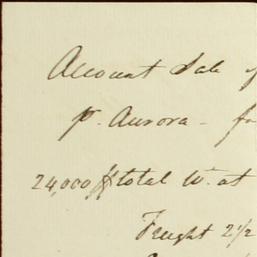 Account Sale of
p. Aurora - fo
24,000 lb total Wt. at
Freight 2 1/2